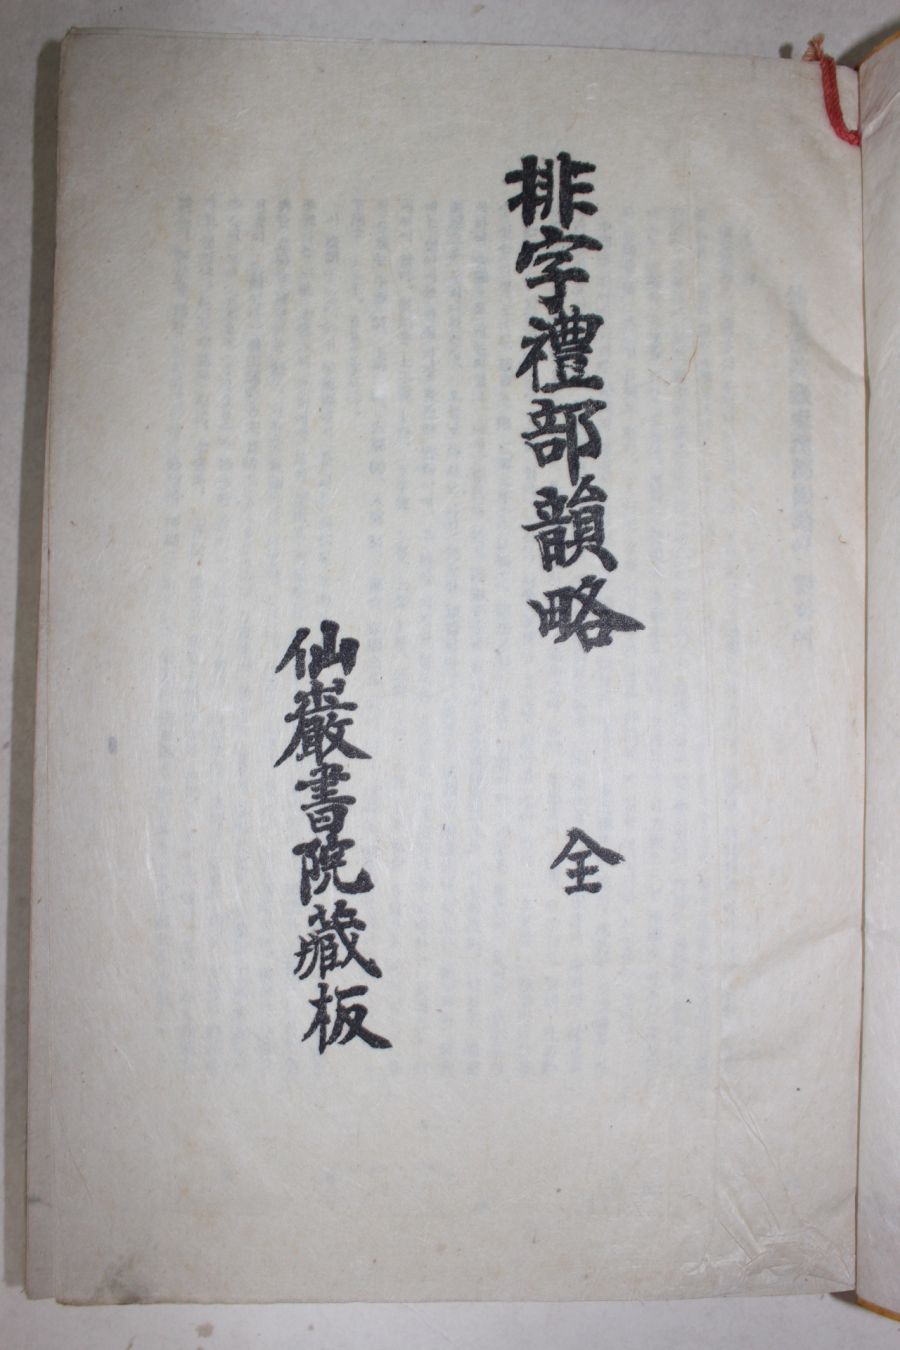 排字禮部韻略 全
仙巖書院藏板